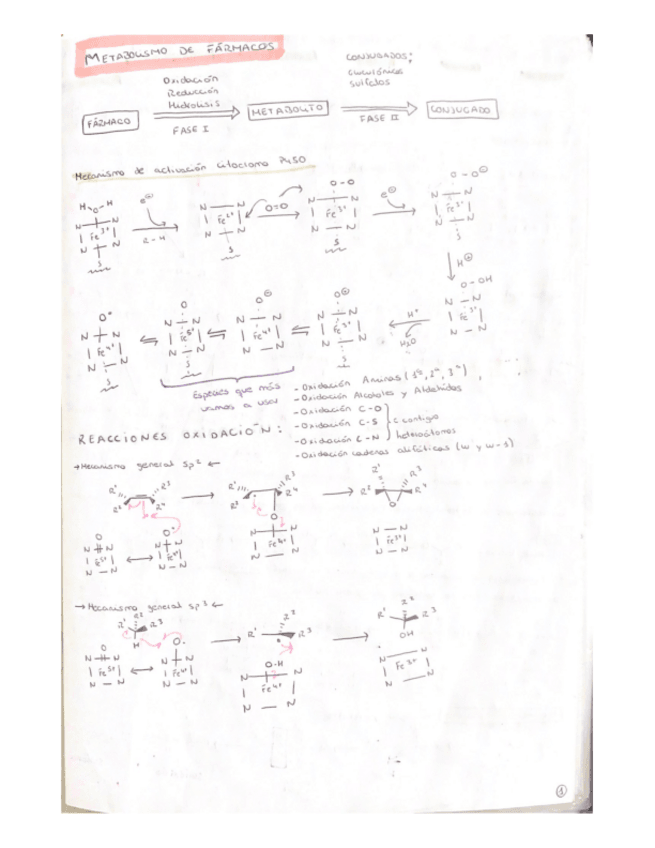 METABOLISMO DE FÁRMACOS
Oxidación
Reducción
Hidrólisis
CONJUGADOS:
Glucurónicos
Sulfatos
FÁRMACO
METABOLITO
CONJUGADO
FASE I
FASE II
Mecanismo de activación citocromo P450
H O H
e⊖
R-H
N N
Fe3+
N N
S
N N
Fe2+
N N
S
O=O
O-O
N N
Fe3+
N N
S
e⊖
O-O⊖
N N
Fe3+
N N
S
H⊕
O-OH
N N
Fe3+
N - N
H+
H2O
O⊖
N N
Fe3+
N N
S
O⊖
N N
Fe4+
N - N
O
N N
Fe5+
N N
S
O•
N N
Fe4+
N N
S
Especies que más
vamos a usar
REACCIONES OXIDACIÓN:
- Oxidación Aminas (1ª, 2ª, 3ª)
- Oxidación Alcoholes y Aldehídos
- Oxidación C-O
- Oxidación C-S
- Oxidación C-N
C contiguo
heteroátomos
- Oxidación cadenas alifáticas (w y w-1)
→ Mecanismo general sp2 ←
R1 R3
R2 R4
O
N N
Fe5+
N - N
O•
N N
Fe4+
N - N
R1 R3
R2 R4
O
N N
Fe4+
N - N
R1 R3
R2 R4
O
N - N
Fe3+
N - N
→ Mecanismo general sp3 ←
R1 R2 R3
H
O
N N
Fe5+
N - N
O•
N N
Fe4+
N - N
R1 R2 R3
O-H
N N
Fe4+
N - N
R1 R2 R3
OH
N - N
Fe3+
N - N
1